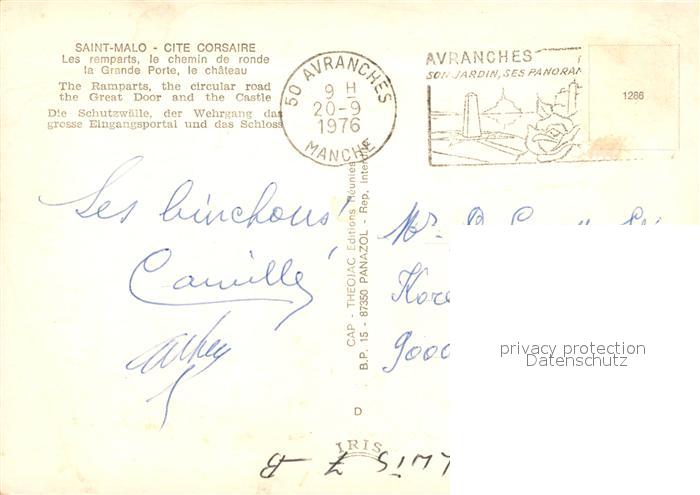 SAINT-MALO - CITE CORSAIRE
Les remparts, le chemin de ronde
la Grande Porte, le château
The Ramparts, the circular road
the Great Door and the Castle
Die Schutzwälle, der Wehrgang das
grosse Eingangsportal und das Schloss
50 AVRANCHES
9 H
20-9
1976
MANCHE
AVRANCHES
SON JARDIN, SES PANORAM
1286
CAP - THEOJAC Editions Réunies
B.P. 15 - 87350 PANAZOL - Rep. Inter
Les
Camille
Mr.
Kore
9000
privacy protection
Datenschutz
D
IRIS
7 B